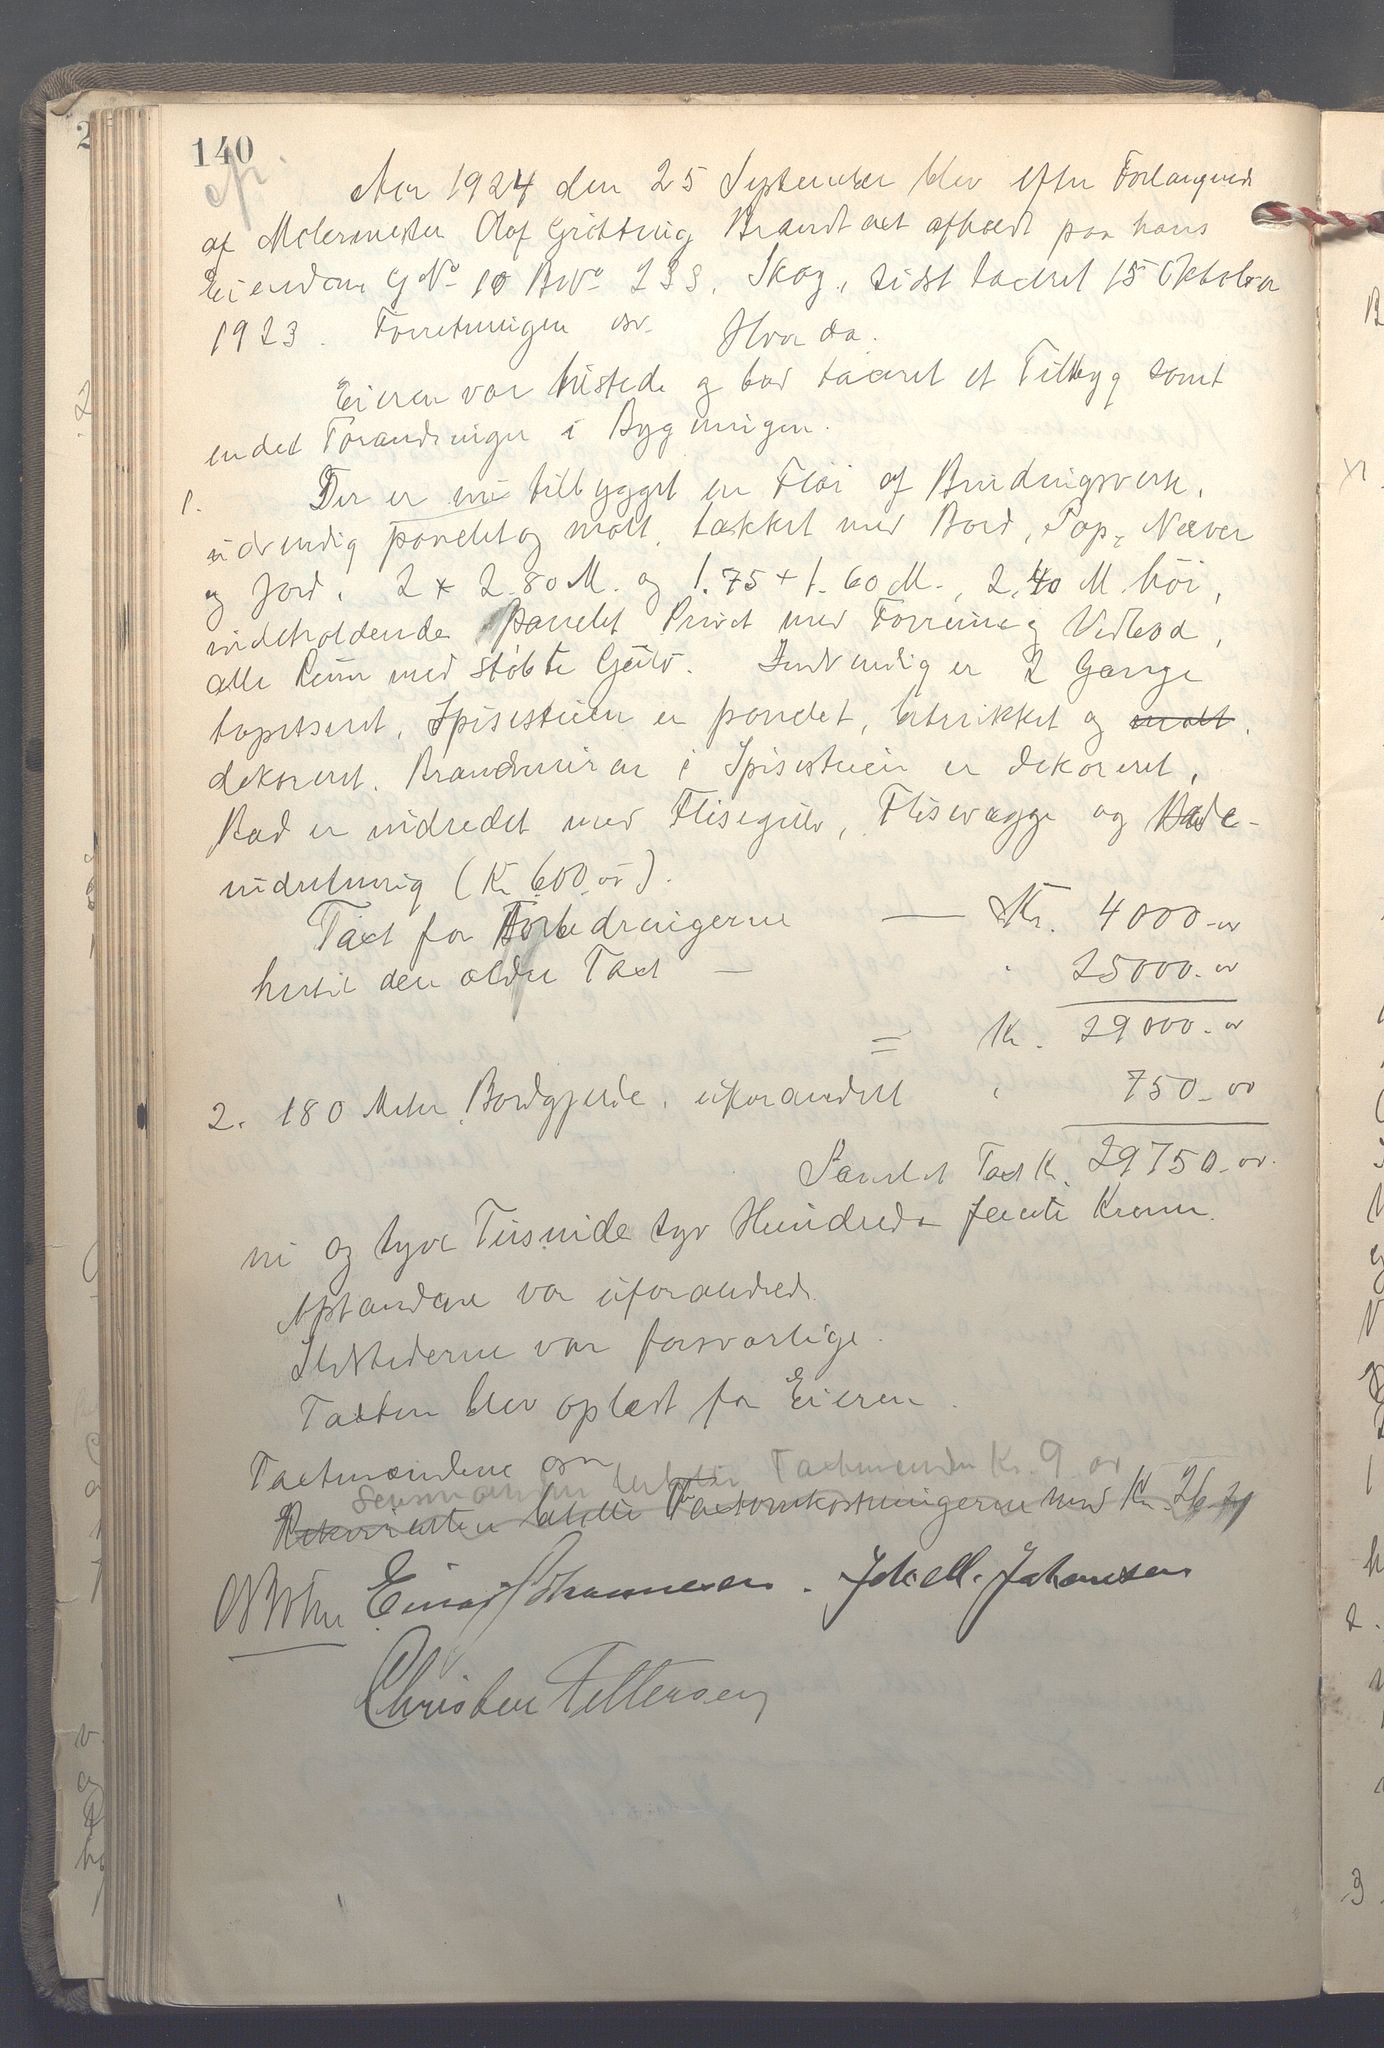 140
Aar 1924 den 25 September blev efter Forlangende
af Malermester Olaf Grötting Brandtaxt afholdt paa hans
Eiendom G No 10 B No 233, Skog, sidst taxeret 15 Oktober
1923. Forretningen osv. Hvorda.
Eieren var tilstede og bad taxeret et Tilbyg samt
endel Forandringer i Bygningen.
1. Der er nu tilbygget en Fløi af Bindingsverk,
udvendig panelet og malt, tækket med Bord, Pap, Næver
og Jord, 2 x 2.80 M. og 1.75 + 1.60 M., 2,40 M høi,
indeholdende panelet Privet med Forrum og Vedbod,
alle Rum med støbte Gulv. Indvendig er 2 Gange
tapetseret, Spisestuen er panelet, betrukket og malt.
dekoreret. Brandmuren i Spisestuen er dekoreret,
Bad er indredet med Flisegulv, Flisevægge og Bade-
indretning (Kr 600 00).
Taxt for Forbedringerne — Kr. 4000-00
hertil den ældre Taxt — " 25000-00
= Kr. 29000-00
2. 180 Meter Bordgjerde, uforandret " 750-00
Samlet Taxt Kr. 29750-00.
ni og tyve Tusinde syv Hundrede femti Kroner.
Afstandene var uforandrede.
Ildstederne var forsvarlige.
Taxten blev oplæst for Eieren.
Taxtmændene osv
betaler Taxtmændene Kr. 9 00
Rekvirenten betalte Taxtomkostningerne med Kr. 26
Einar Johannesen. Johan M. Johansen
Christen Pettersen